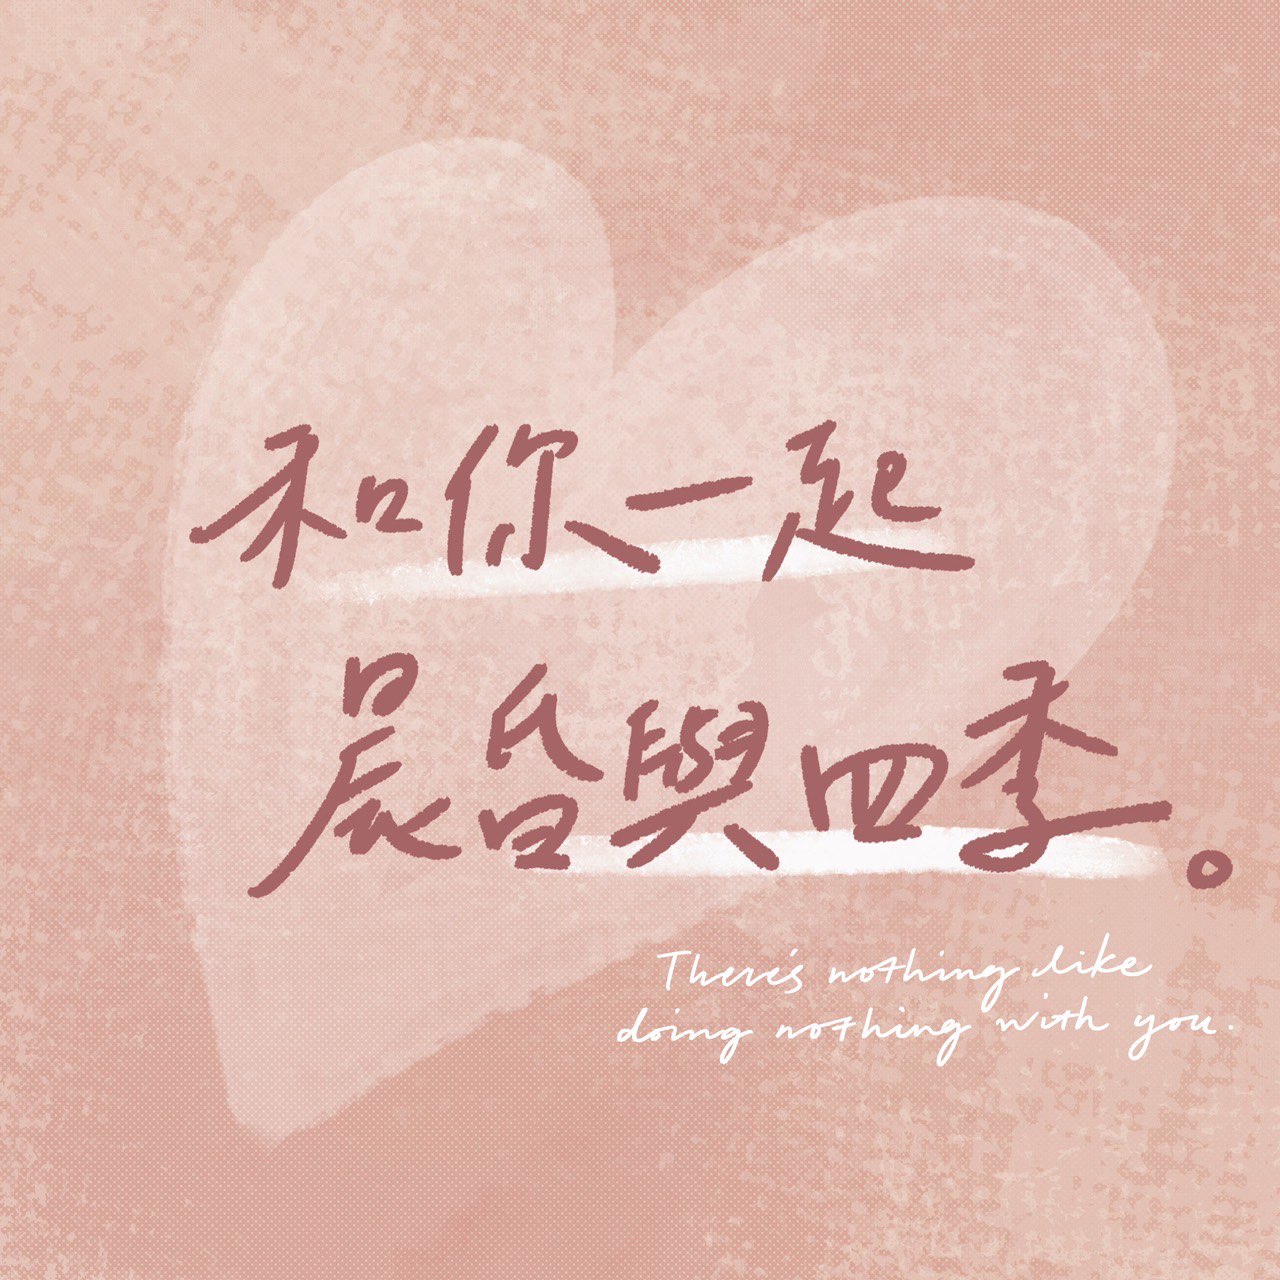 和你一起
晨昏與四季。
There's nothing like
doing nothing with you.